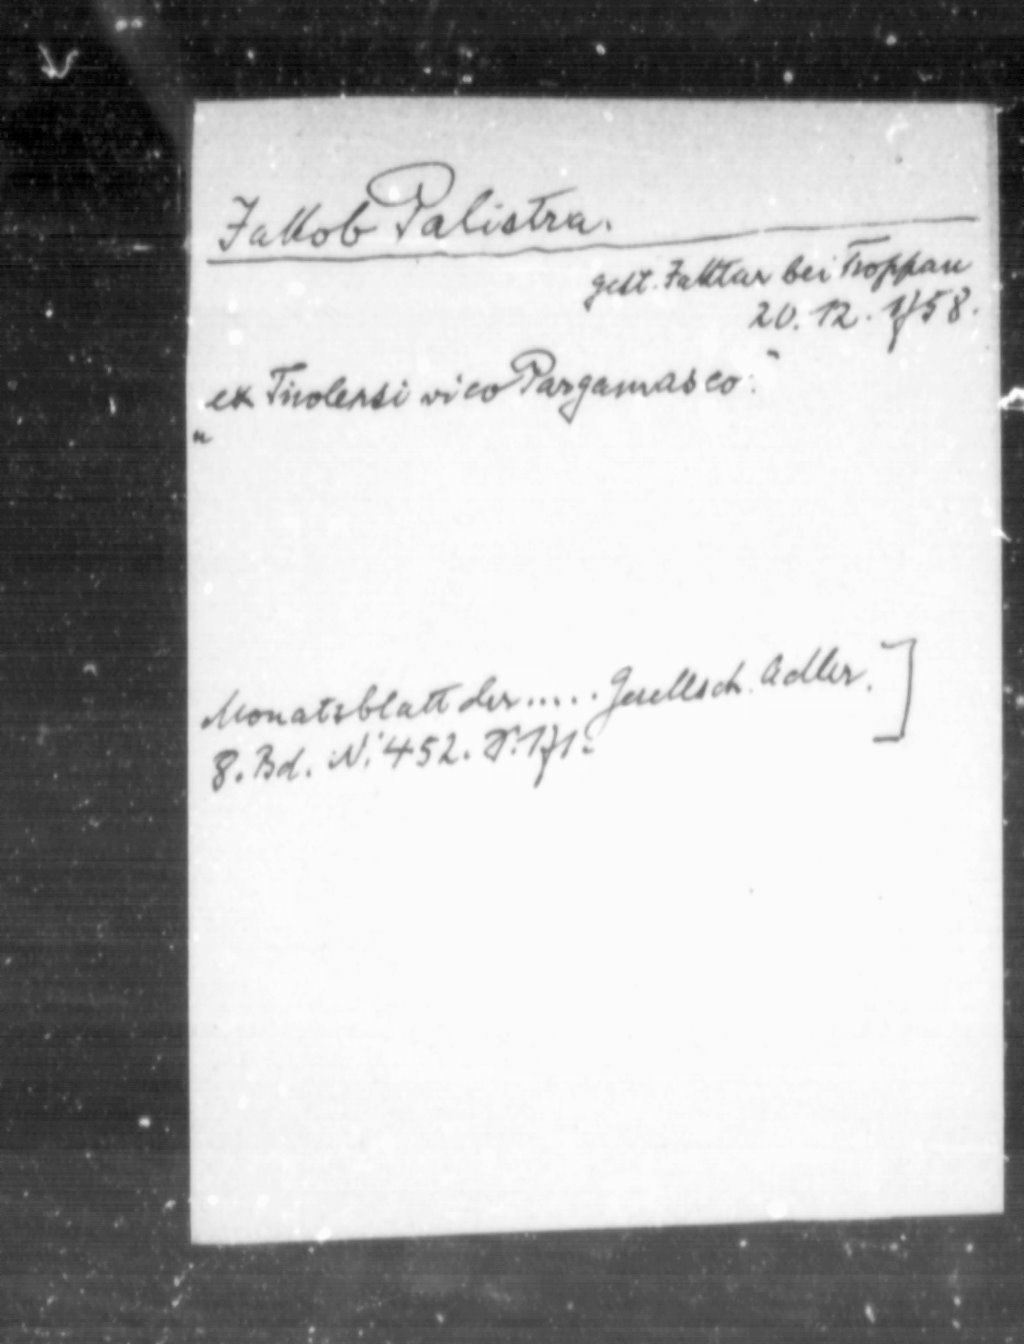 Jakob Palistra.
gest. Jaktar bei Troppau
20. 12. 1758.
„ex Tirolensi vico Pargamasco."
Monatsblatt der ..... Gesellsch. Adler.]
8. Bd. N. 452. S. 171.